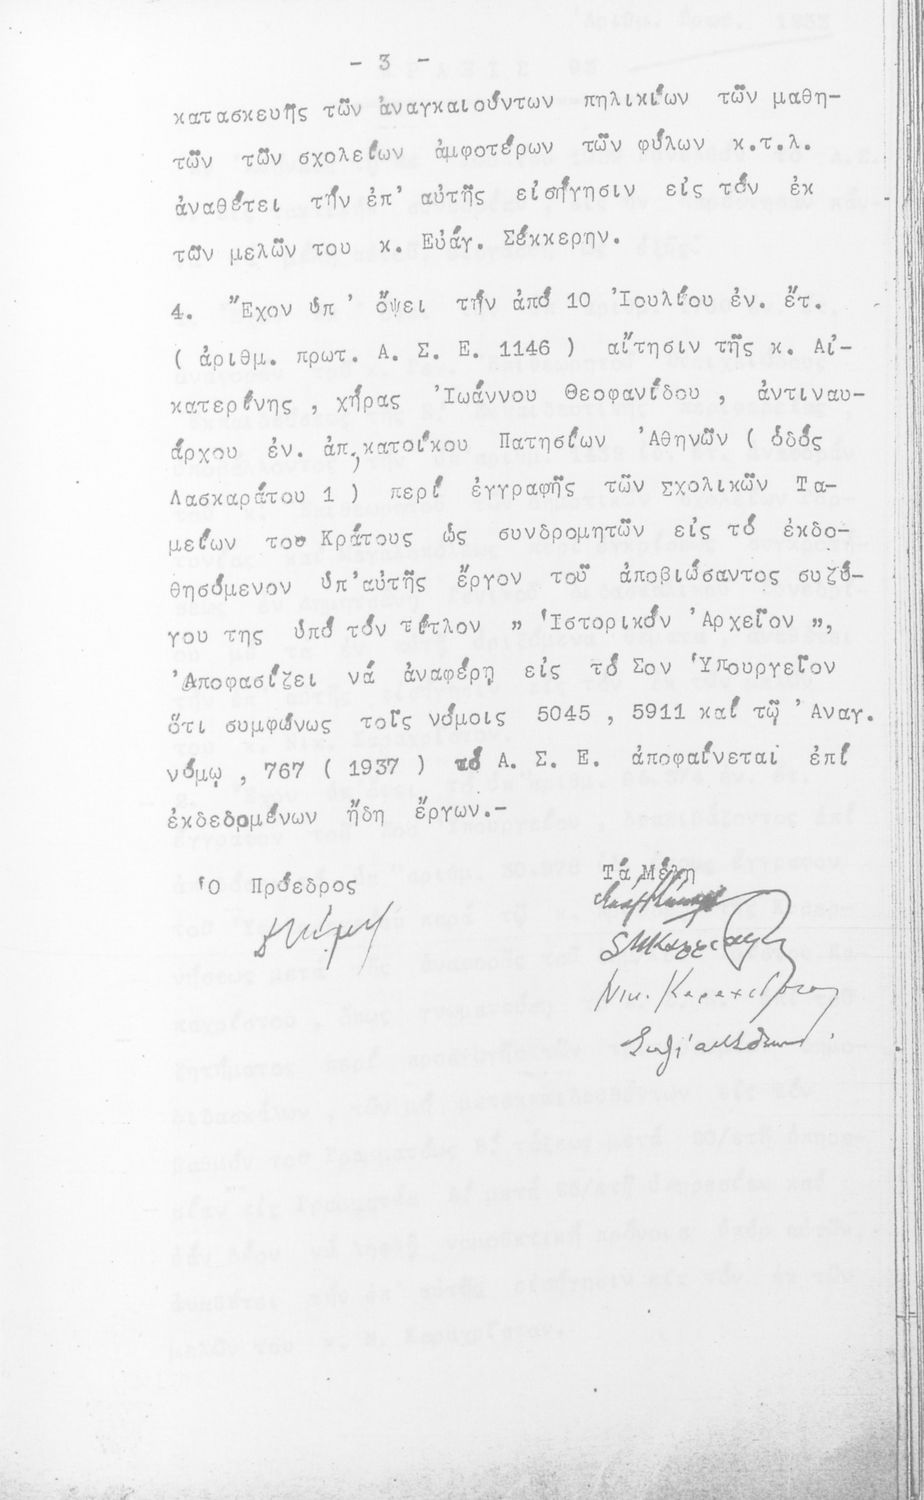 - 3 -
κατασκευῆς τῶν ἀναγκαιούντων πηλικίων τῶν μαθη-
τῶν τῶν σχολείων ἀμφοτέρων τῶν φύλων κ.τ.λ.
ἀναθέτει τήν ἐπ' αὐτῆς εἰσήγησιν εἰς τόν ἐκ
τῶν μελῶν του κ. Εὐάγ. Σέκκερην.
4. Ἔχον ὑπ' ὄψει τήν ἀπό 10 Ἰουλίου ἐν. ἔτ.
( ἀριθμ. πρωτ. Α. Σ. Ε. 1146 ) αἴτησιν τῆς κ. Αἰ-
κατερίνης , χήρας Ἰωάννου Θεοφανίδου , ἀντιναυ-
άρχου ἐν. ἀπ, κατοίκου Πατησίων Ἀθηνῶν ( ὁδός
Λασκαράτου 1 ) περί ἐγγραφῆς τῶν Σχολικῶν Τα-
μείων του Κράτους ὡς συνδρομητῶν εἰς τό ἐκδο-
θησόμενον ὑπ' αὐτῆς ἔργον τοῦ ἀποβιώσαντος συζύ-
γου της ὑπό τόν τίτλον „ Ἱστορικόν Ἀρχεῖον „,
Ἀποφασίζει νά ἀναφέρῃ εἰς τό Σον Ὑπουργεῖον
ὅτι συμφώνως τοῖς νόμοις 5045 , 5911 καί τῷ Ἀναγ.
νόμῳ , 767 ( 1937 ) τό Α. Σ. Ε. ἀποφαίνεται ἐπί
ἐκδεδομένων ἤδη ἔργων.-
Ὁ Πρόεδρος
Τά Μέλη
Νικ.